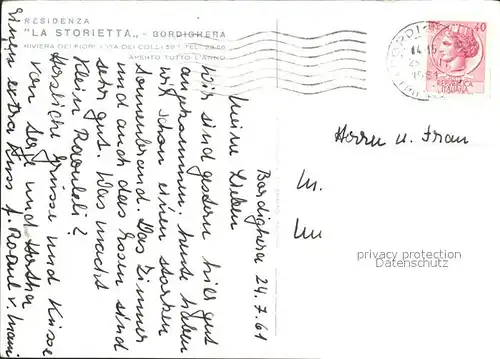 RESIDENZA
"LA STORIETTA" - BORDIGHERA
RIVIERA DEI FIORI - VIA DEI COLLI TEL.
APERTO TUTTO L'ANNO
Bordighera 24.7.61
Meine Lieben
Wir sind gestern hier gut
angekommen, heute haben
wir schon einen starken
Sonnenbrand. Das Zimmer
und auch das Essen sind
sehr gut. Was macht
Klein Raouleli?
Herzliche Grüsse und Küsse
von Serge und Hertha
einen extra Kuss f. Raoul v. Mami
BORDI
14-15
1961
40
REPUBBLICA
ITALIANA
Herrn u. Frau
privacy protection
Datenschutz